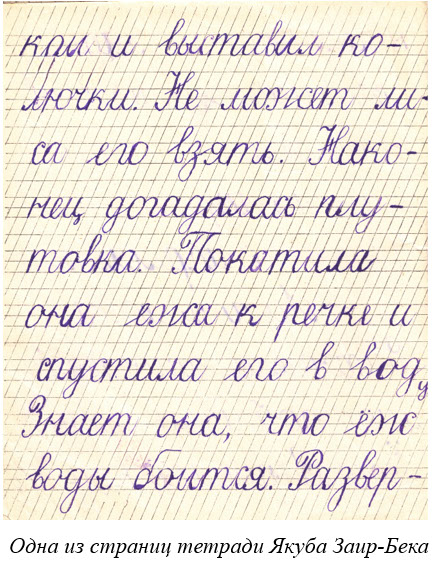 кал и выставил ко-
лючки. Не может ли-
са его взять. Нако-
нец догадалась плу-
товка. Покатила
она ежа к речке и
спустила его в воду
Знает она, что ёж
воды боится. Развер-
Одна из страниц тетради Якуба Заир-Бека